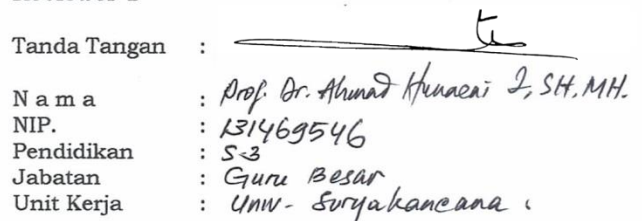 Tanda Tangan :
N a m a : Prof. Dr. Ahmad Hunaeni Z, SH, MH.
NIP. : 131469546
Pendidikan : S-3
Jabatan : Guru Besar
Unit Kerja : Univ- Suryakancana